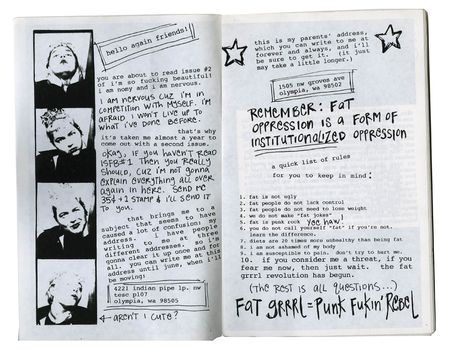 hello again friends!
you are about to read issue #2
of i'm so fucking beautiful!
i am nomy and i am nervous.
I AM NERVOUS CUZ I'M IN
COMPETITION WITH MYSELF. I'M
AFRAID I WON'T LIVE UP TO
WHAT I'VE DONE BEFORE.
that's why
it's taken me almost a year to
come out with a second issue.
OKAY, IF YOU HAVEN'T READ
ISFB#1 THEN YOU REALLY
SHOULD, CUZ I'M NOT GONNA
EXPLAIN EVERYTHING ALL OVER
AGAIN IN HERE. SEND ME
35¢ + 2 STAMP & I'LL SEND IT
TO YOU.
that brings me to a
subject that seems to have
caused a lot of confusion: my
address. i have people
writing to me at three
different addresses. i'm
gonna clear it up once and for
all. you can write me at this
address until june, when i'll
be moving!
4221 indian pipe lp. nw
tesc p107
olympia, wa 98505
← AREN'T I CUTE?
this is my parents' address,
which you can write me at
forever and always, and i'll
be sure to get it. (it just
may take a little longer.)
1505 nw groves ave
olympia, wa 98502
REMEMBER: FAT
OPPRESSION IS A FORM OF
INSTITUTIONALIZED OPPRESSION
a quick list of rules
for you to keep in mind:
1. fat is not ugly
2. fat people do not lack control
3. fat people do not need to lose weight
4. we do not make "fat jokes"
5. fat is punk rock YEE HAW!
6. you do not call yourself "fat" if you're not.
learn the difference.
7. diets are 20 times more unhealthy than being fat
8. i am not ashamed of my body
9. i am susceptible to pain. don't try to hurt me.
10. if you consider me a threat, if you
fear me now, then just wait. the fat
grrrl revolution has begun.
(THE REST IS ALL QUESTIONS...)
FAT GRRRL = PUNK FUKIN' REBEL